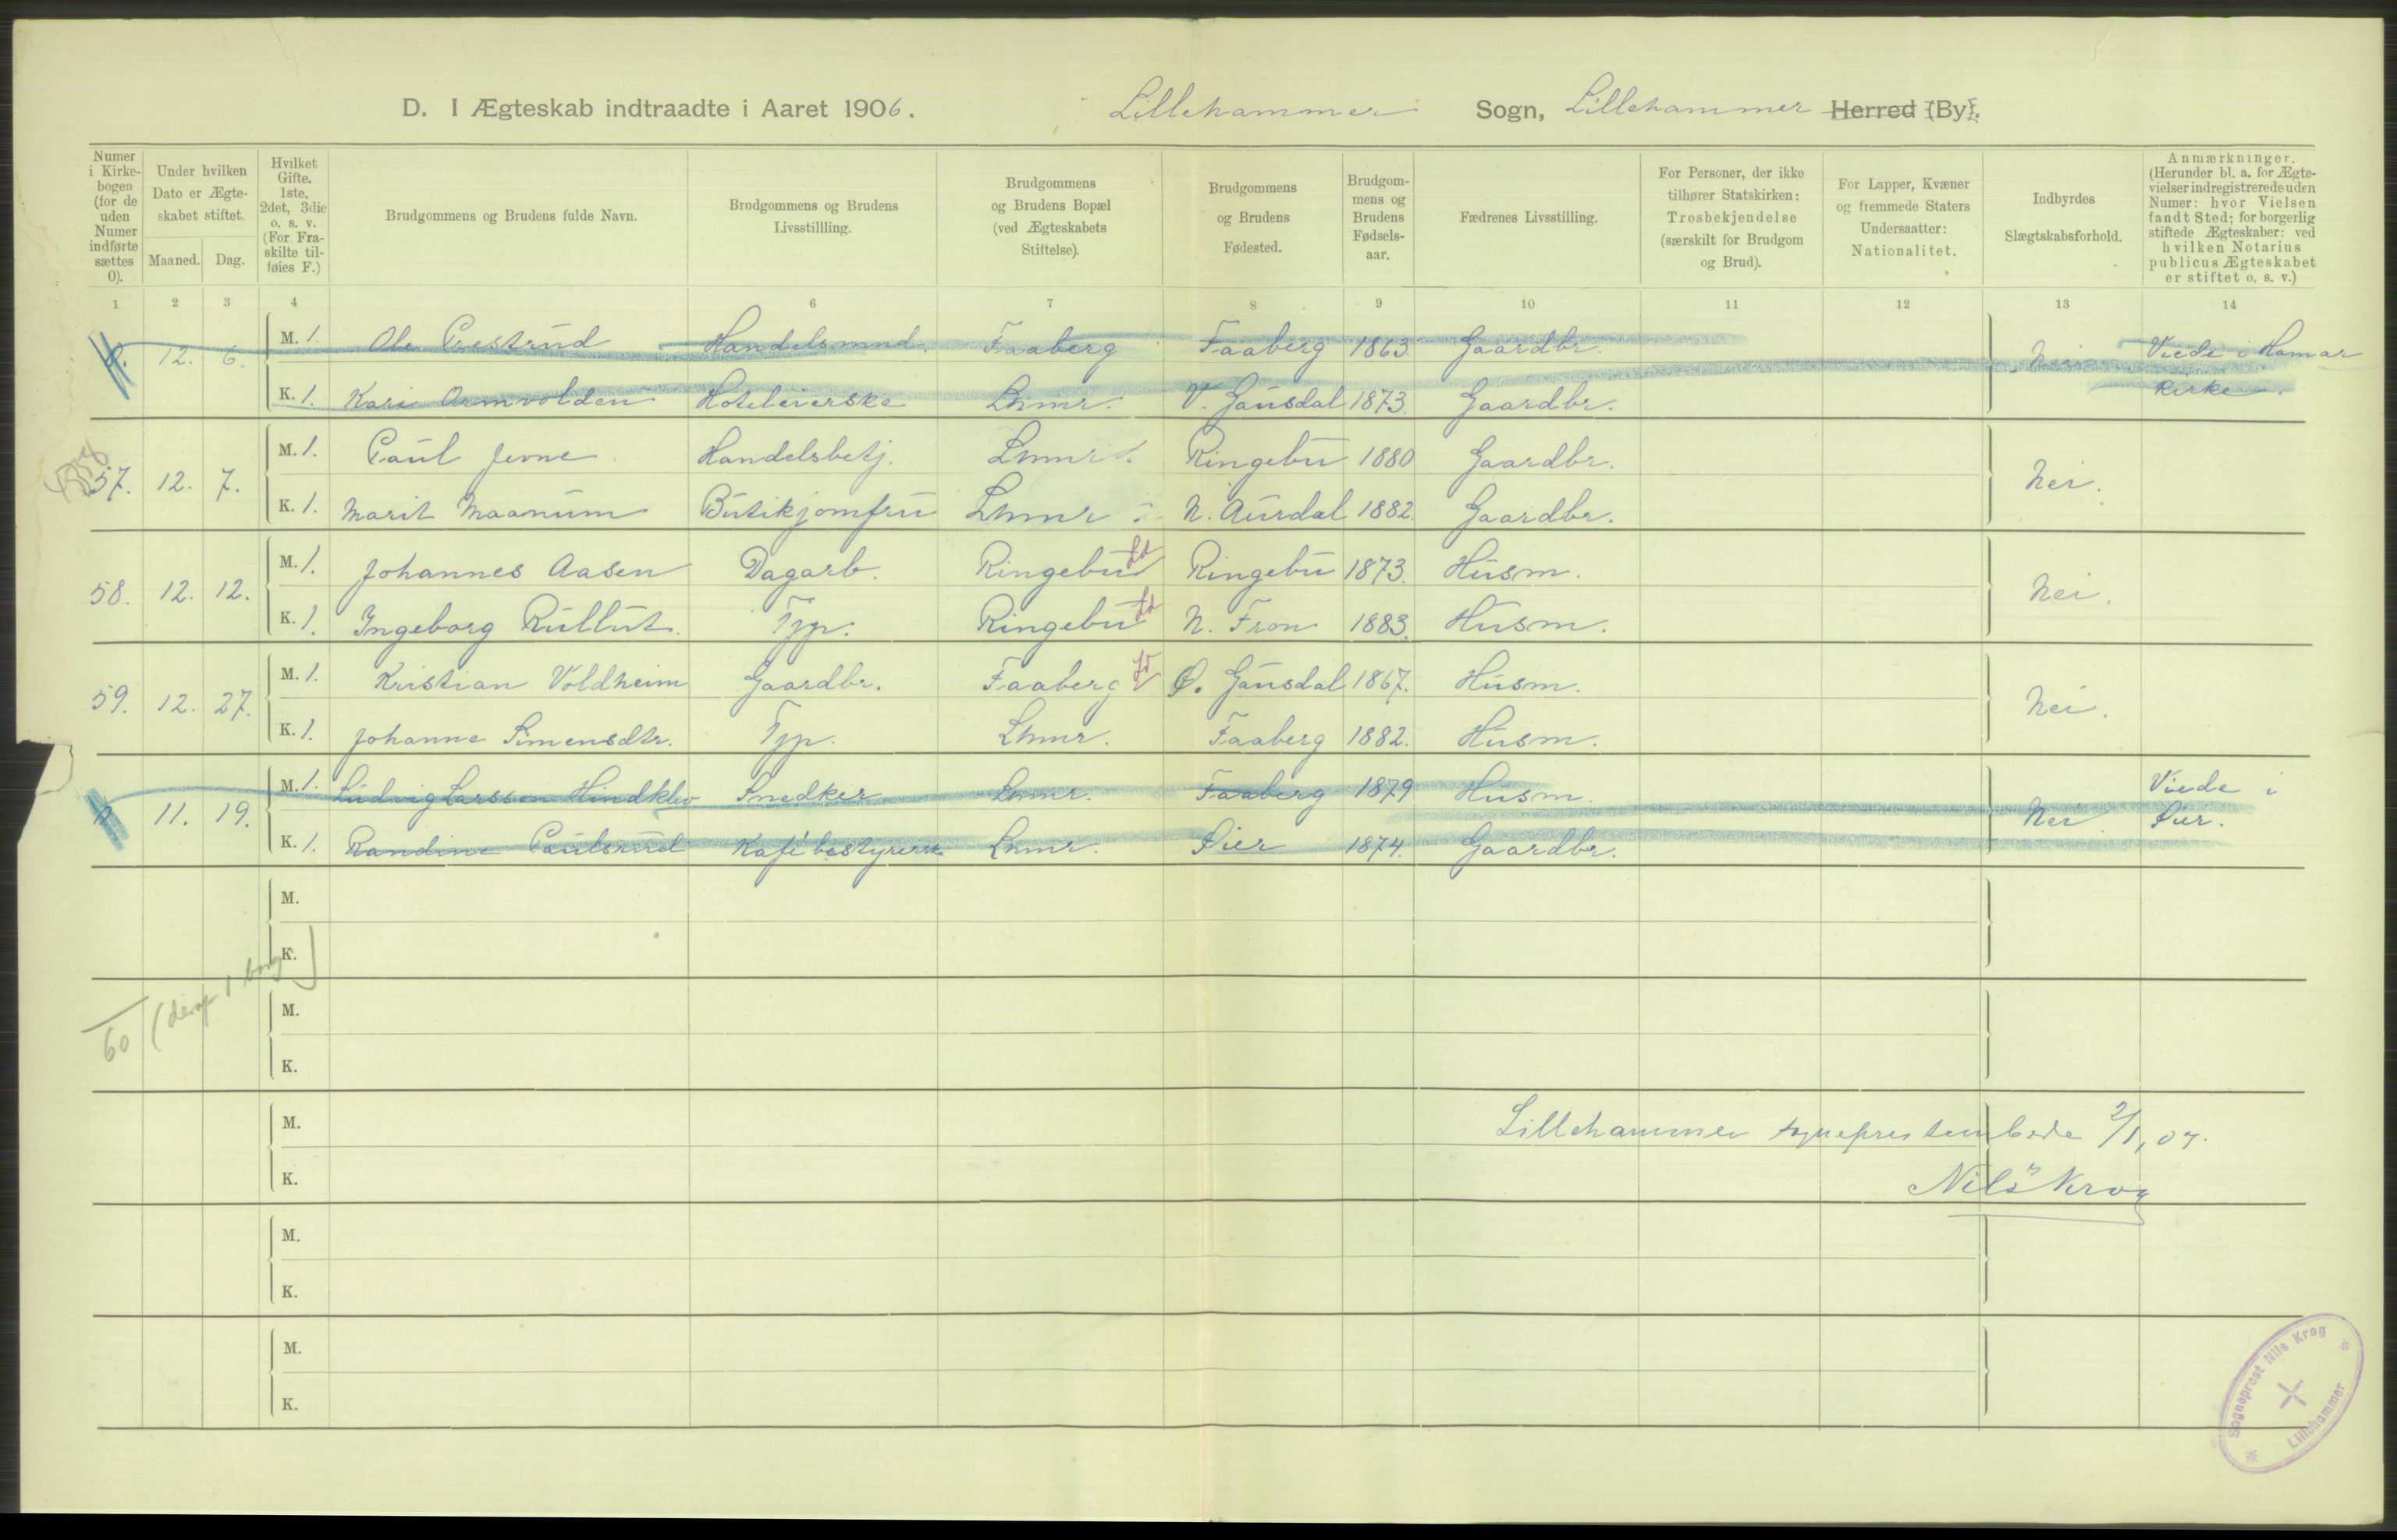 D. I Ægteskab indtraadte i Aaret 1906. Lillehammer Sogn, Lillehammer Herred (By).
Numer i Kirkebogen (for de uden Numer indførte sættes 0).
Under hvilken Dato er Ægteskabet stiftet.
Maaned. Dag.
Hvilket Gifte. 1ste, 2det, 3die o. s. v. (For Fraskilte tilføies F.)
Brudgommens og Brudens fulde Navn.
Brudgommens og Brudens Livsstillling.
Brudgommens og Brudens Bopæl (ved Ægteskabets Stiftelse).
Brudgommens og Brudens Fødested.
Brudgommens og Brudens Fødselsaar.
Fædrenes Livsstilling.
For Personer, der ikke tilhører Statskirken: Trosbekjendelse (særskilt for Brudgom og Brud).
For Lapper, Kvæner og fremmede Staters Undersaatter: Nationalitet.
Indbyrdes Slægtskabsforhold.
Anmærkninger. (Herunder bl. a. for Ægtevielser indregistrerede uden Numer: hvor Vielsen fandt Sted; for borgerlig stiftede Ægteskaber: ved hvilken Notarius publicus Ægteskabet er stiftet o. s. v.)
1 2 3 4 6 7 8 9 10 11 12 13 14
0. 12. 6. M. 1. Ole Prestrud Handelsmnd. Faaberg Faaberg 1863. Gaardbr. Nei Viede i Hamar
K. 1. Kari Ormvolden Hoteleierske Lhmr. V. Gausdal 1873. Gaardbr. kirke.
57. 12. 7. M. 1. Paul Jevne Handelsbetj. Lhmr. Ringebu 1880 Gaardbr. Nei.
K. 1. Marit Maanum Butikjomfru Lhmr N. Aurdal 1882. Gaardbr.
58. 12. 12. M. 1. Johannes Aasen Dagarb. Ringebu Ld Ringebu 1873. Husm. Nei.
K. 1. Ingeborg Rullut. Tjp. Ringebu Ld N. Fron 1883. Husm.
59. 12. 27. M. 1. Kristian Voldheim Gaardbr. Faaberg Ø. Gausdal 1867. Husm. Nei.
K. 1. Johanne Simensdtr. Tjp. Lhmr. Faaberg 1882. Husm.
11. 19. M. 1. Ludvig Larssen Hindklev Snedker Lhmr. Faaberg 1879 Husm. Nei. Viede i
K. 1. Randine Paulsrud Kafé bestyrerske Lhmr. Øier 1874. Gaardbr. Øier.
M.
K.
60 (deraf 1 borg)
M.
K.
M. Lillehammer sogneprestembede 2/1, 07.
K. Nils Krog
M.
K.
M.
K.
Sogneprest Nils Krog
Lillehammer